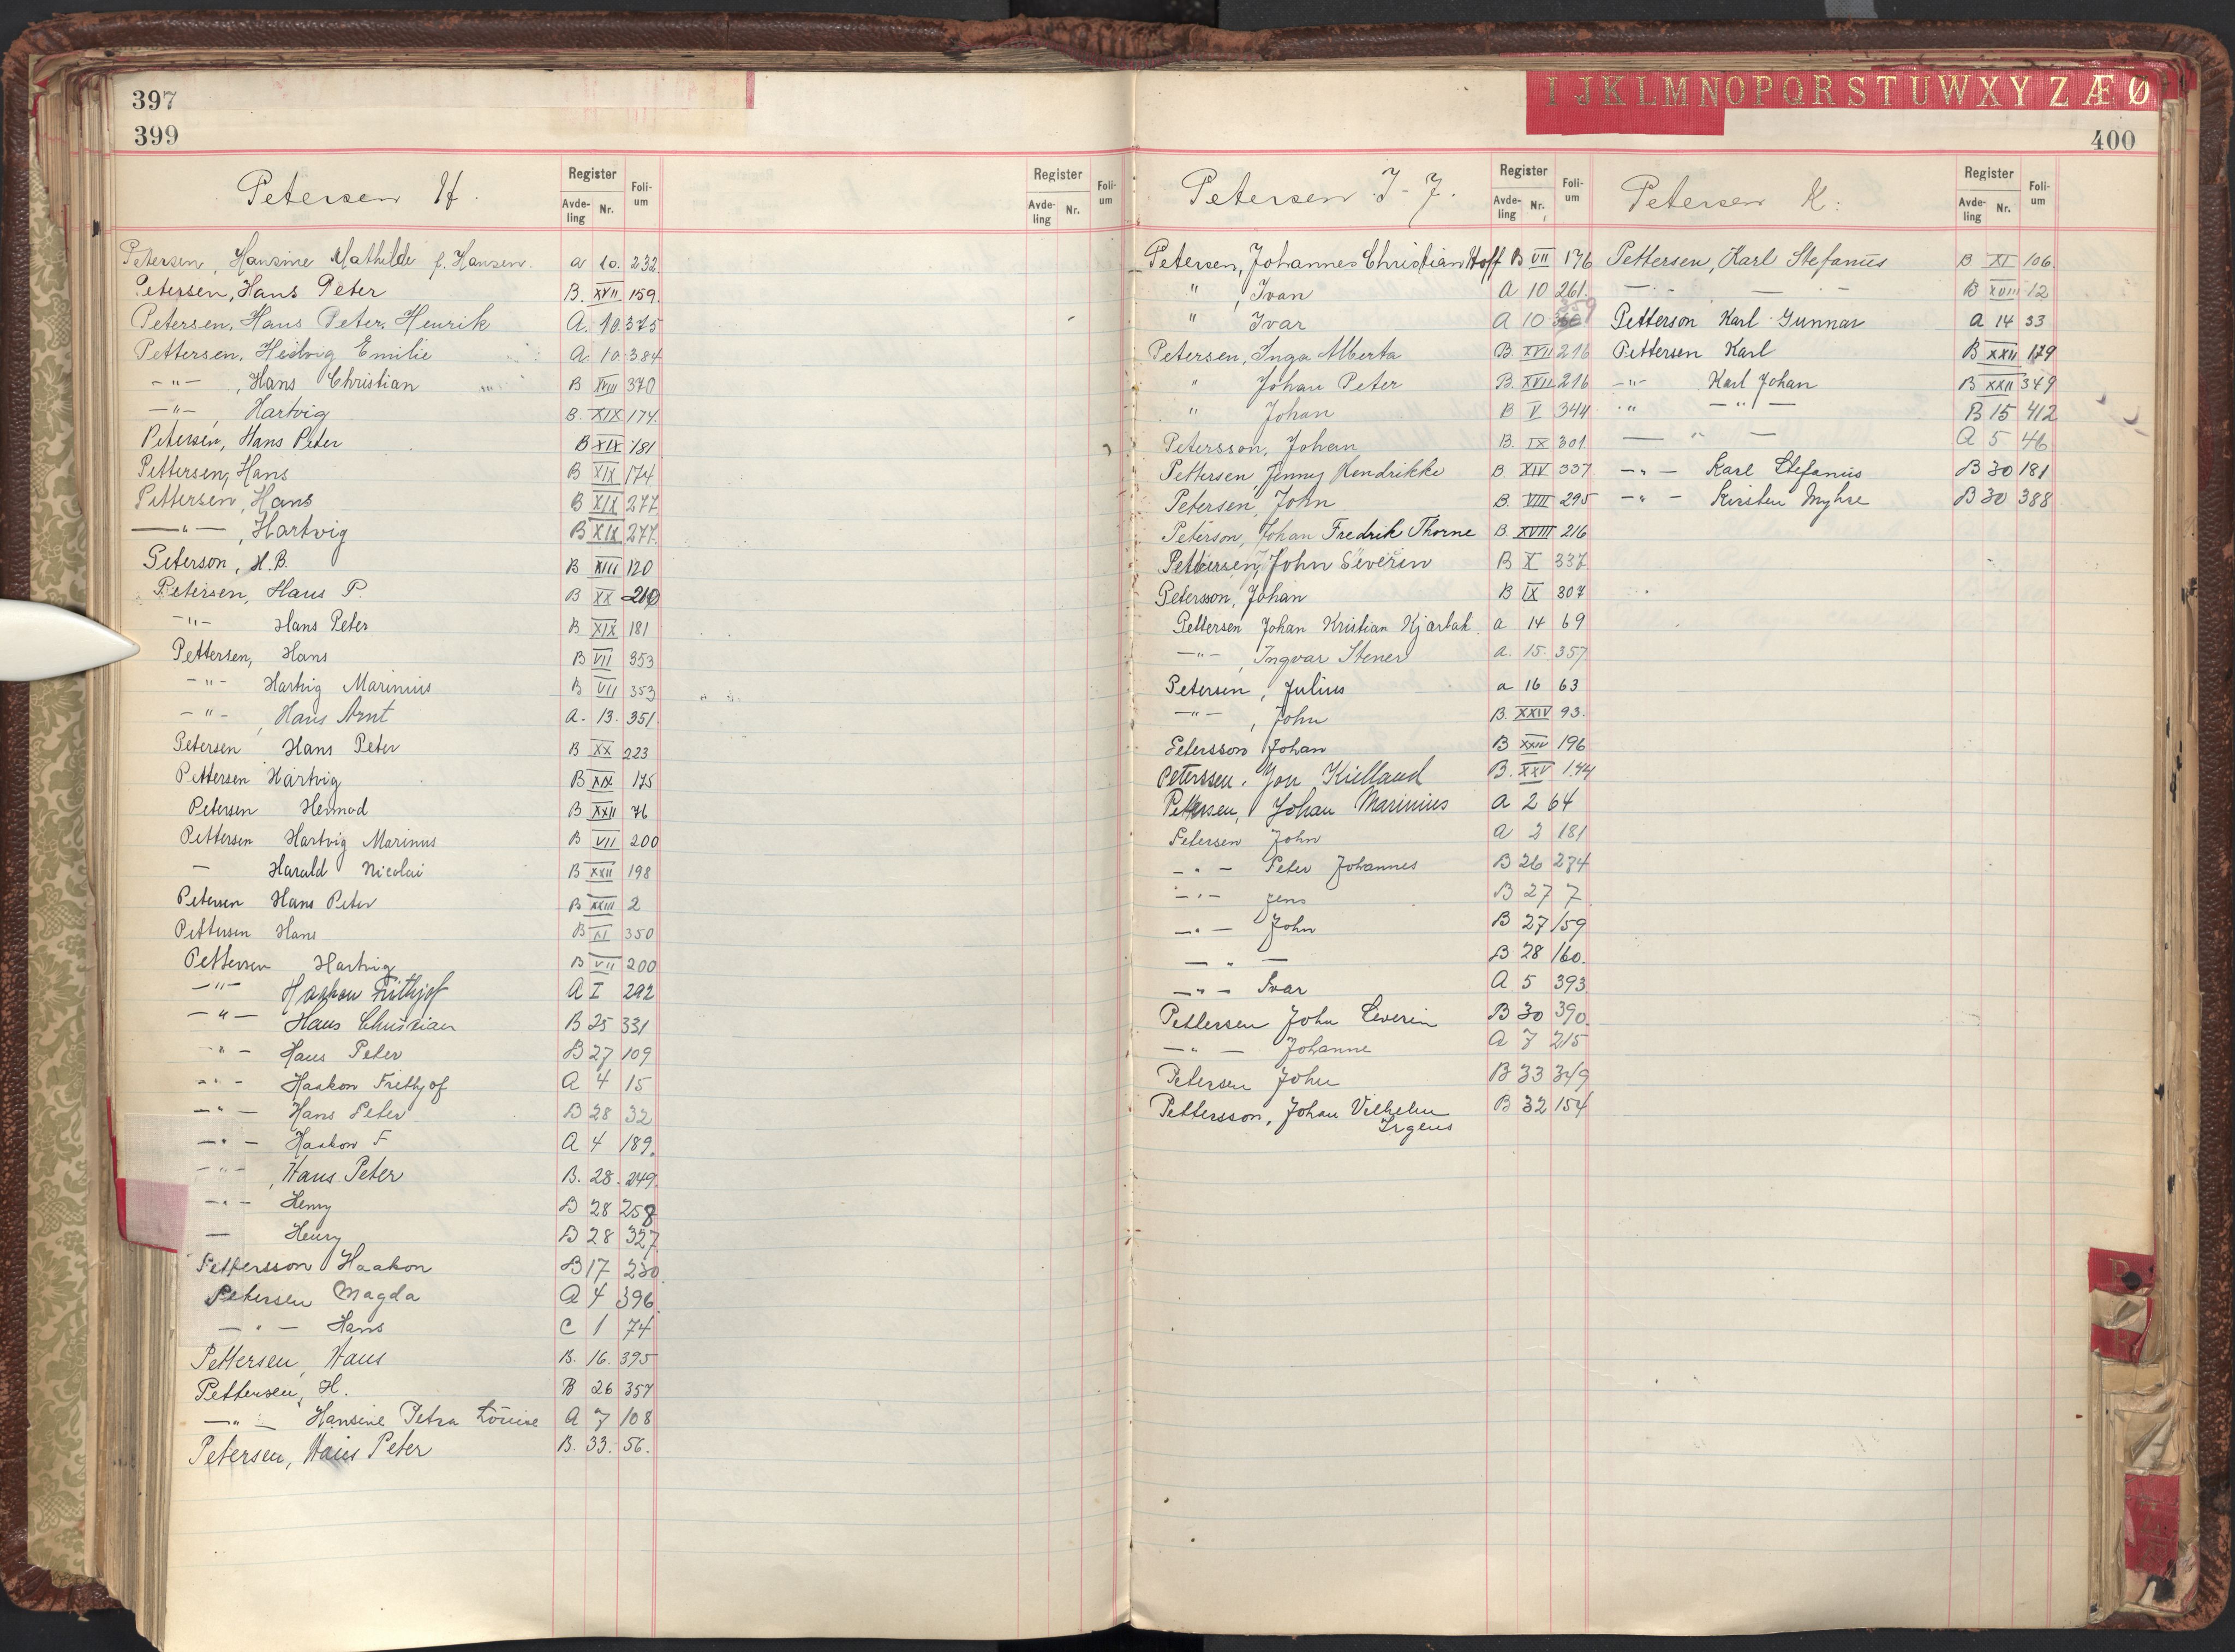 397
399
Petersen H.
Register Foli-um
Avde-ling Nr.
Register Foli-um
Avde-ling Nr.
Petersen, Hansine Mathilde f. Hansen. a 10. 232.
Petersen, Hans Peter B. XVII 159.
Petersen, Hans Peter Henrik A. 10. 375
Pettersen, Hedvig Emilie A. 10. 384
-"- , Hans Christian B XVIII 370
-"- , Hartvig B. XIX 174.
Petersen, Hans Peter B XIX 181
Pettersen, Hans B XIX 174
Pettersen, Hans B XIX 277
-"- , Hartvig B XIX 277.
Peterson, H.B. B XIII 120
Petersen, Hans P. B XX 210
-"- Hans Peter B XIX 181
Pettersen, Hans B VII 353
-"- Hartvig Marinius B VII 353
-"- , Hans Arnt A. 13. 351.
Petersen Hans Peter B XX 223
Pettersen Hartvig B XIX 175
Petersen Hermod B XXII 76
Pettersen Hartvig Marinus B VII 200
- Harald Nicolai B XXII 198
Petersen Hans Peter B XXIII 2
Pettersen Hans B XI 350
Pettersen Hartvig B VII 200
-"- Haakon Frithjof A I 292
-"- Hans Christian B 25 331
-"- Hans Peter B 27 109
-"- Haakon Frithjof A 4 15
-"- Hans Peter B 28 32
-"- Haakon F A 4 189.
-"- , Hans Peter B. 28. 249.
-"- Henry B 28 258
- Henry B 28 327
Pettersson Haakon B 17 230
Petersen Magda A 4 396.
-"- Hans C 1 74
Pettersen, Hans B. 16. 395
Pettersen, H. B 26 357
-"- Hansine Petra Louise A 7 108
Petersen, Hans Peter B. 33. 56.
I J K L M N O P Q R S T U W X Y Z Æ Ø
400
Petersen I-J.
Register Foli-um
Avde-ling Nr.
Petersen, Johannes Christian Hoff B VII 176
" , Ivan A 10 261.
" Ivar A 10 359
Petersen, Inga Alberta B. XVII 216
" Johan Peter B. XVII 216
" Johan B V 344
Petersson, Johan B. IX 301.
Pettersen, Jenny Hendrikke B. XIV 337.
Petersen, John B. VIII 295
Peterson, Johan Fredrik Thorne B. XVIII 216
Pettersen, John Severin B X 337
Petersson, Johan B IX 307
Pettersen Johan Kristian Kjærbak. a 14 69
-"- , Ingvar Stener a. 15. 357
Petersen, Julius a 16 63
-"- , John B. XXIV 93.
Petersson Johan B XXIV 196
Peterssen, Jon Kielland B. XXV 144
Pettersen, Johan Marinius A 2 64
Petersen John A 2 181
-"- Peter Johannes B 26 274
-"- Jens B 27 7
-"- John B 27 159
-"- B 28 160.
-"- Ivar A 5 393
Pettersen John Severin B 30 390.
-"- Johanne A 7 215
Petersen John B 33 349
Pettersson, Johan Vilhelm B 32 154
Irgens
Petersen K.
Register Foli-um
Avde-ling Nr.
Pettersen, Karl Stefanus B XI 106
- - - B XVIII 12
Petterson Karl Gunnar A 14 33
Pettersen Karl B XXII 179
-"- Karl Johan B XXII 349
" -"- B 15 412
- " - A 5 46
-"- Karl Stefanus B 30 181
-"- Kirsten Myhre B 30 388